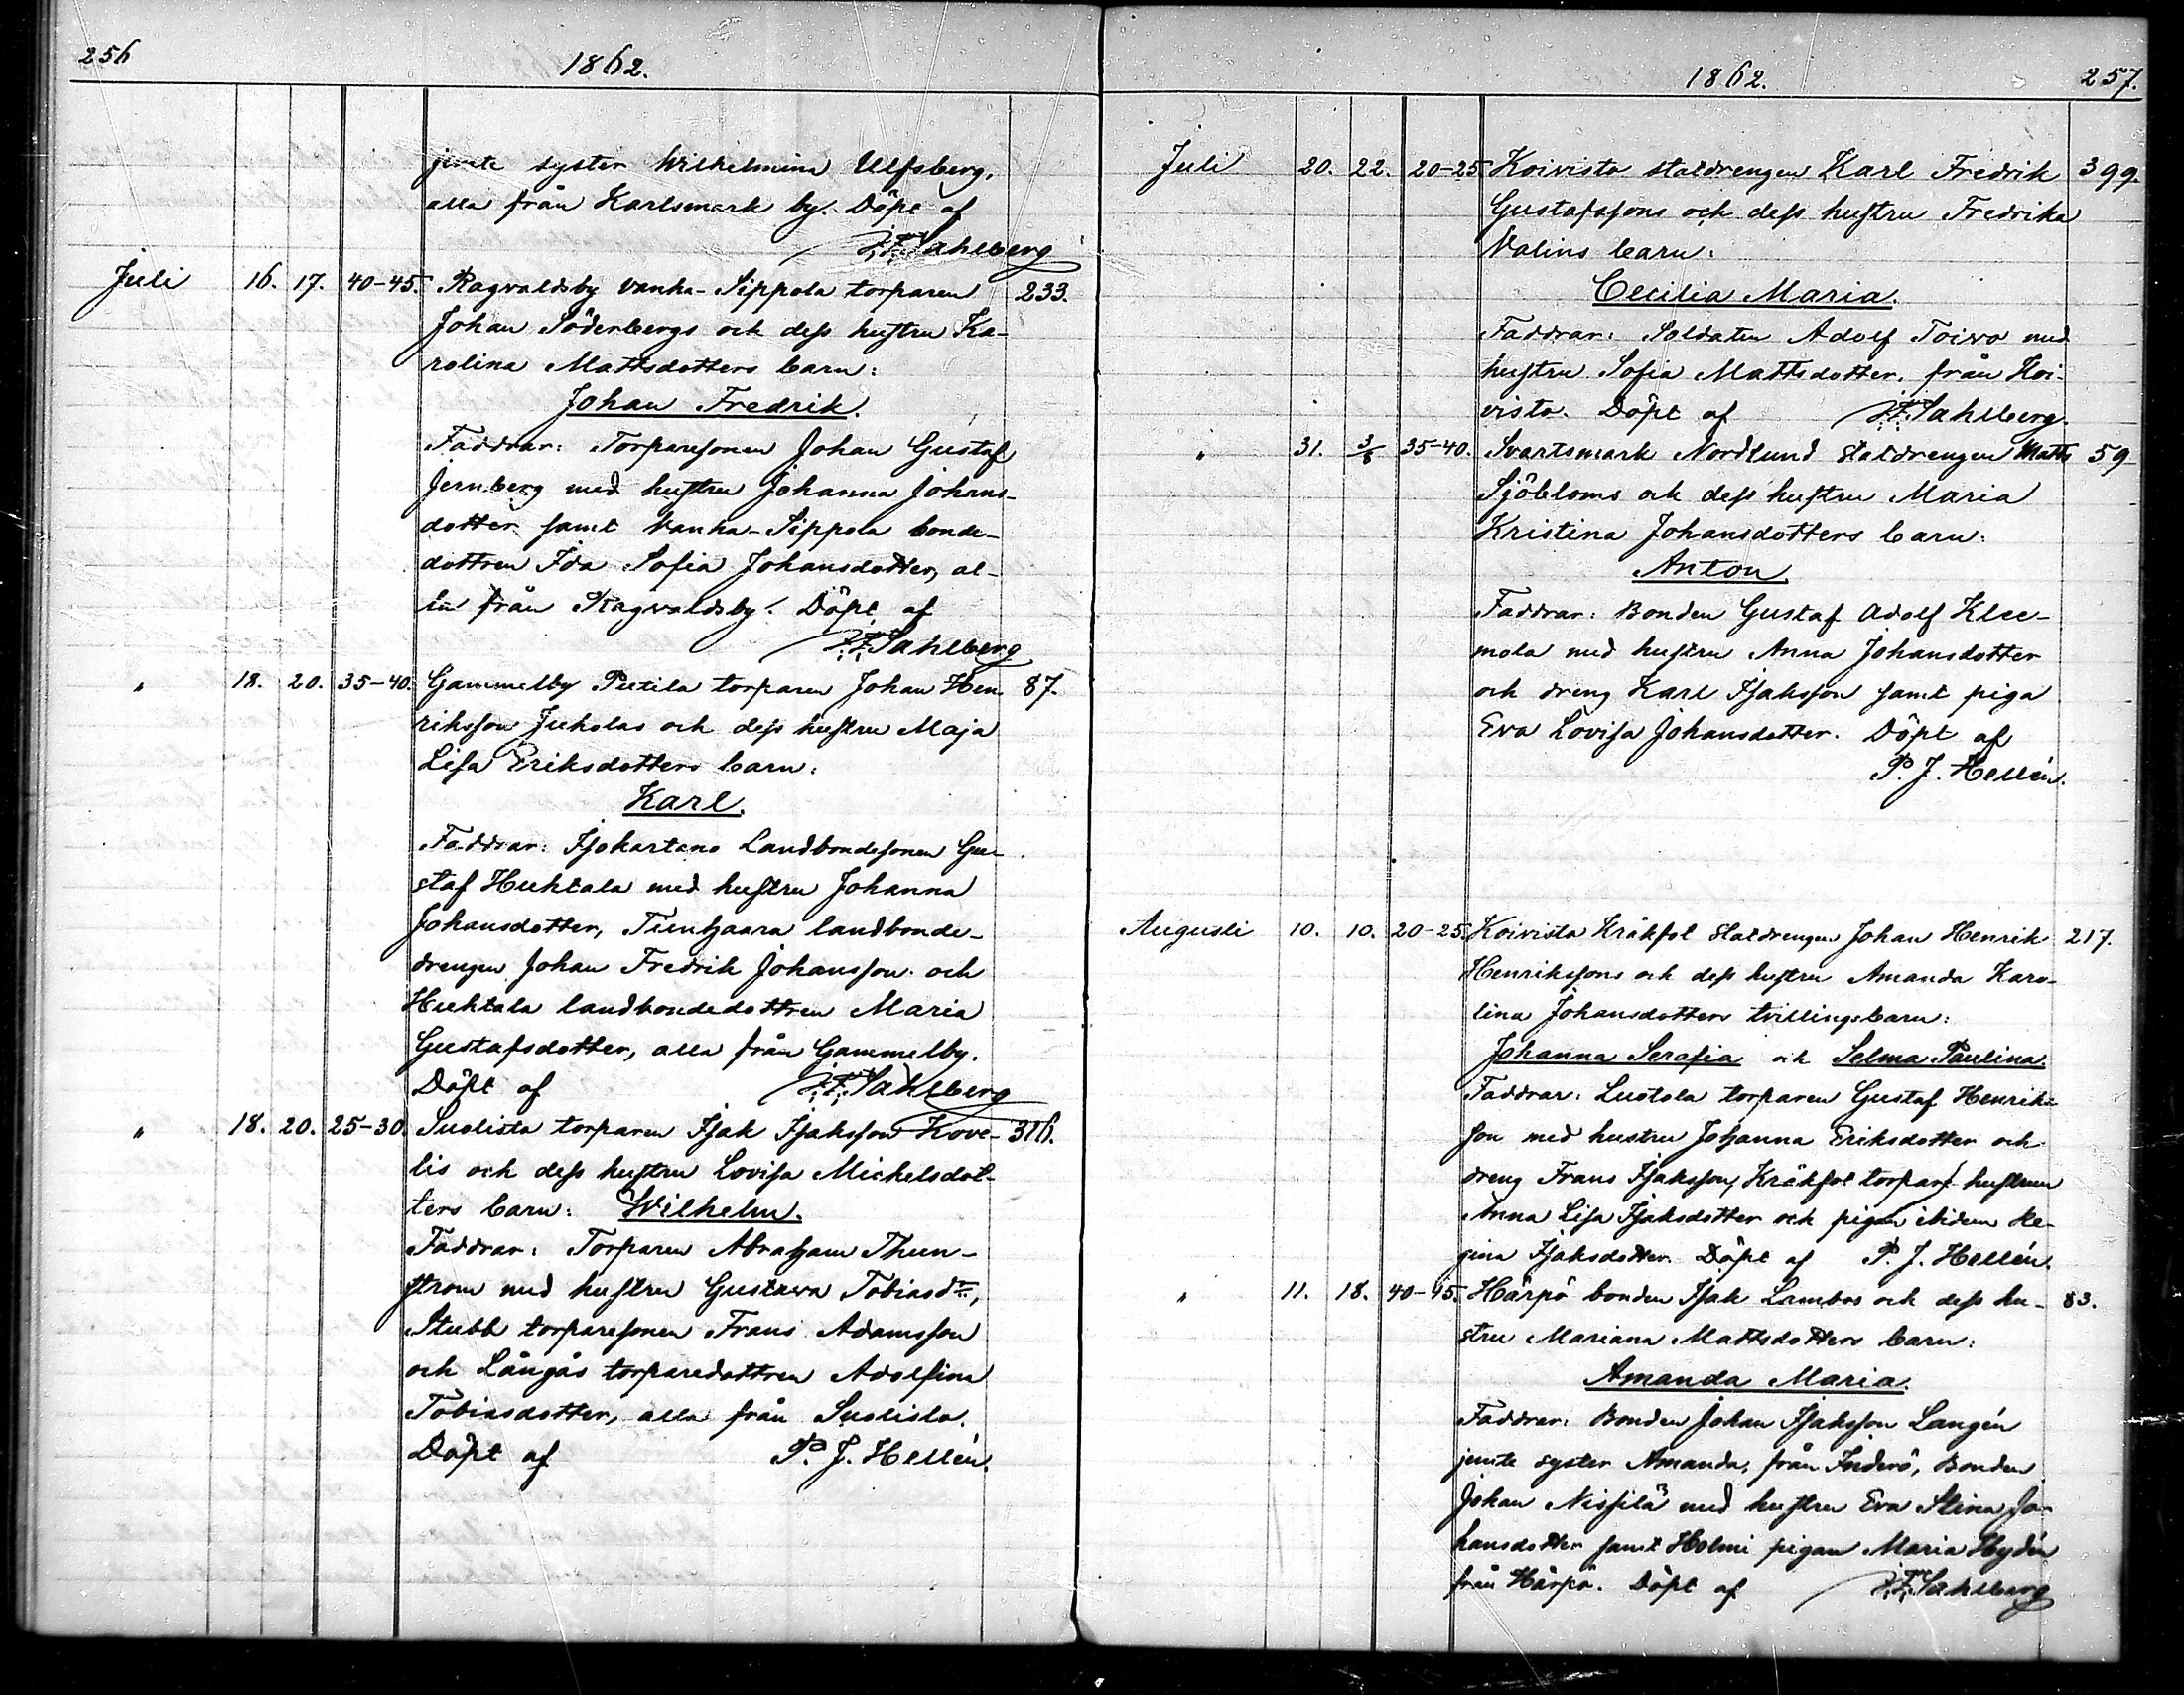 256
1862.
jemte syster Wilhelmina Ulfsberg,
alla från Karlsmark by. Döpt af
F. F. Sahlberg
Juli 16. 17. 40-45. Ragvaldsby Vanha-Sippola torparen 233.
Johan Söderbergs och dess hustru Ka-
rolina Mattsdotters barn:
Johan Fredrik.
Faddrar: Torparesonen Johan Gustaf
Jernberg med hustru Johanna Johans-
dotter samt Vanha-Sippola bonde-
dottren Ida Sofia Johansdotter, al-
la från Ragvaldsby. Döpt af
F. F. Sahlberg
" 18. 20. 35-40. Gammelby Putila torparen Johan Hen- 87.
riksson Jukolas och dess hustru Maja
Lisa Eriksdotters barn:
Karl.
Faddrar: Isokartano Landbondesonen Gu-
staf Huhtala med hustru Johanna
Johansdotter, Tienhaara landbonde-
drengen Johan Fredrik Johansson och
Huhtala landbondedottren Maria
Gustafsdotter, alla från Gammelby.
Döpt af F. F. Sahlberg
" 18. 20. 25-30. Suolista torparen Isak Isaksson Kove- 316.
lis och dess hustru Lovisa Michelsdot-
ters barn: Wilhelm.
Faddrar: Torparen Abraham Thun-
strom med hustru Gustava Tobiasd:r,
Stubb torparesonen Frans Adamsson
och Långås torparedottren Adolfina
Tobiasdotter, alla från Suolista.
Döpt af P. J. Hellén.
1862.
257.
Juli 20. 22. 20-25. Koivisto statdrengen Karl Fredrik 399.
Gustafssons och dess hustru Fredrika
Valins barn:
Cecilia Maria.
Faddrar: Soldaten Adolf Toivo med
hustru Sofia Mattsdotter, från Koi-
visto. Döpt af F. F. Sahlberg.
" 31. 3/8 35-40. Svartsmark Nordlund statdrengen Matts 59
Sjöbloms och dess hustru Maria
Kristina Johansdotters barn:
Anton.
Faddrar: Bonden Gustaf Adolf Klee-
mola med hustru Anna Johansdotter
och dreng Karl Isaksson samt piga
Eva Lovisa Johansdotter. Döpt af
P. J. Hellén.
Augusti 10. 10. 20-25. Koivisto Kråkfot statdrengen Johan Henrik 217.
Henrikssons och dess hustru Amanda Karo-
lina Johansdotters tvillingsbarn:
Johanna Serafia och Selma Paulina.
Faddrar: Lustola torparen Gustaf Henriks-
son med hustru Johanna Eriksdotter och
dreng Frans Isaksson, Kråkfot torpare hustrun
Anna Lisa Isaksdotter och pigan ibidem Re-
gina Isaksdotter. Döpt af P. J. Hellén.
" 11. 18. 40-45. Härpö bonden Isak Lambos och dess hu- 83.
stru Mariana Mattsdotters barn:
Amanda Maria.
Faddrar: Bonden Johan Isaksson Langén
jemte syster Amanda, från Inderö, Bonden
Johan Nissilä med hustru Eva Stina Jo-
hansdotter samt Holmi pigan Maria Hydén
från Härpö. Döpt af F. F. Sahlberg